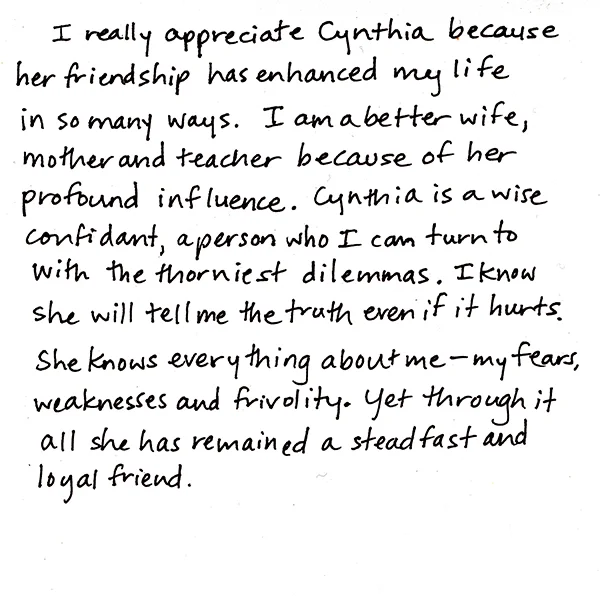 I really appreciate Cynthia because
her friendship has enhanced my life
in so many ways. I am a better wife,
mother and teacher because of her
profound influence. Cynthia is a wise
confidant, a person who I can turn to
with the thorniest dilemmas. I know
she will tell me the truth even if it hurts.
She knows everything about me – my fears,
weaknesses and frivolity. Yet through it
all she has remained a steadfast and
loyal friend.